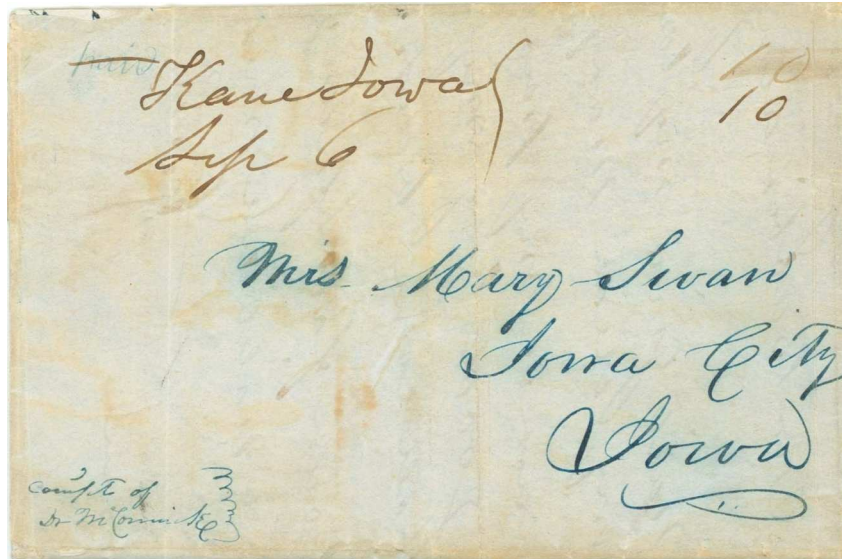 paid
Kane Iowa
10
Sep 6
10
Mrs. Mary Swan
Iowa City
Iowa
compt of
Dr McCormick